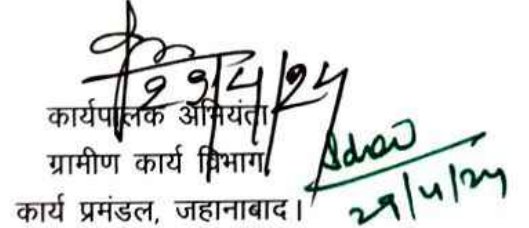 29/4/24
कार्यपालक अभियंता
ग्रामीण कार्य विभाग,
कार्य प्रमंडल, जहानाबाद।
29/4/24